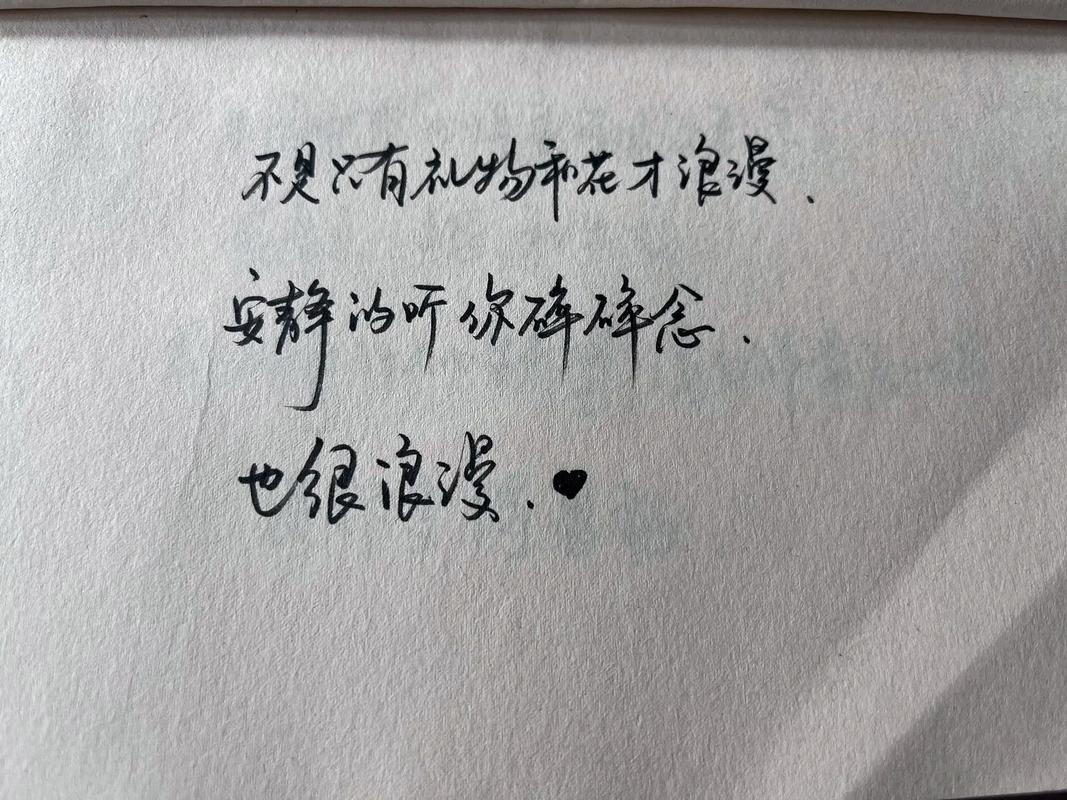 不是只有礼物和花才浪漫.
安静的听你碎碎念.
也很浪漫.♥